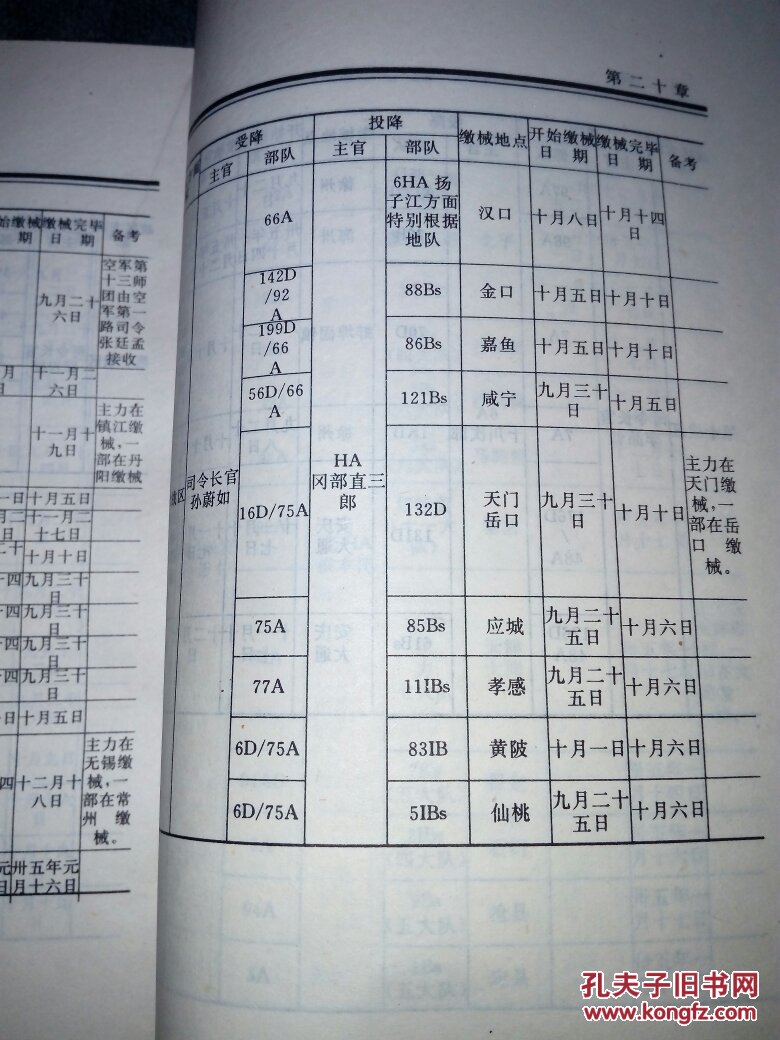 第二十章
受降 投降 缴械地点 开始缴械日期 缴械完毕日期 备考
主官 部队 主官 部队
司令长官
孙蔚如
HA
冈部直三
郎
66A 6HA 扬子江方面特别根据地队 汉口 十月八日 十月十四日
142D/92A 88Bs 金口 十月五日 十月十日
199D/66A 86Bs 嘉鱼 十月五日 十月十日
56D/66A 121Bs 咸宁 九月三十日 十月五日
16D/75A 132D 天门岳口 九月三十日 十月十日 主力在天门缴械,一部在岳口缴械。
75A 85Bs 应城 九月二十五日 十月六日
77A 11IBs 孝感 九月二十五日 十月六日
6D/75A 83IB 黄陂 十月一日 十月六日
6D/75A 5IBs 仙桃 九月二十五日 十月六日
始缴械期 缴械完毕日期 备考
九月二十六日 空军第十三师团由空军第一路司令张廷孟接收
月 十一月二六日
十一月十九日 主力在镇江缴械,一部在丹阳缴械
一日 十月五日
月二日 十一月二十七日
二十 十月十日
十四 九月三十日
九月三十日
十四 九月三十日
十四 九月三十日
一日 十月五日
四 十二月十八日 主力在无锡缴械,一部在常州缴械。
元日 卅五年元月十六日
孔夫子旧书网
www.kongfz.com